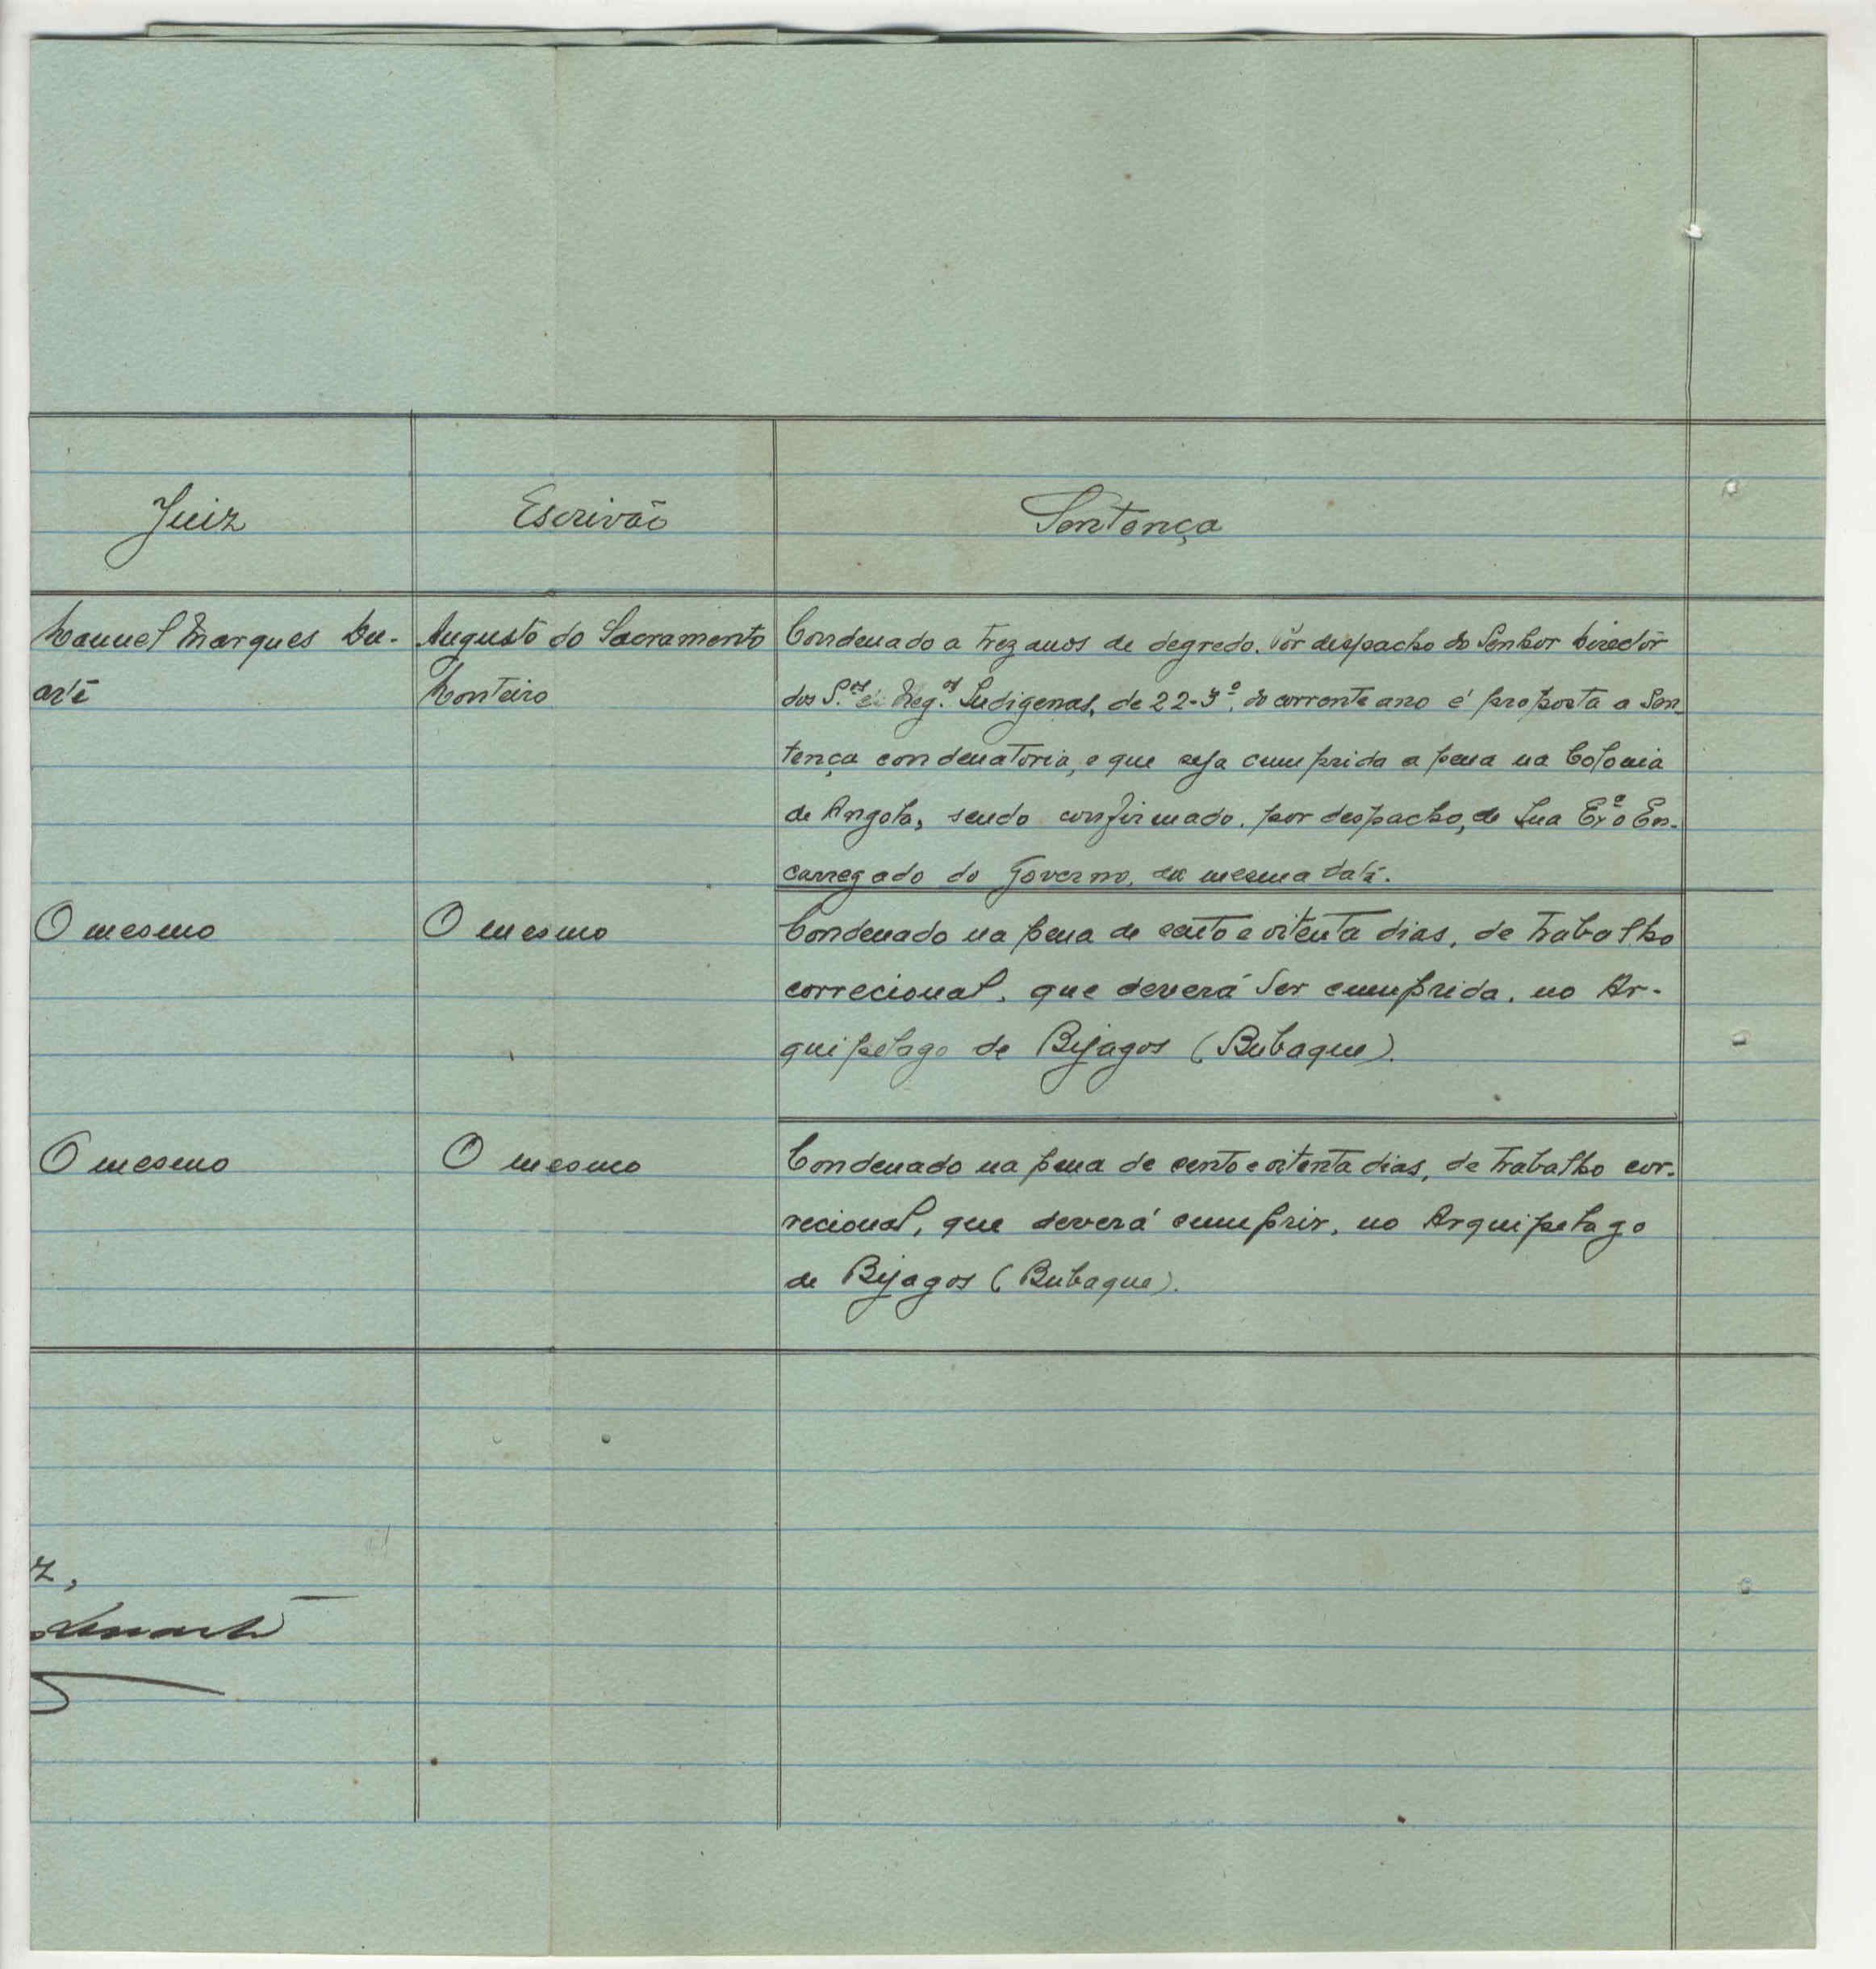 Juiz
Escrivão
Sentença
Manuel Marques Du-
arte
Augusto do Sacramento
Monteiro
Condenado a trez anos de degredo. Por despacho do Senhor Director
dos S.os e Neg.os Indigenas, de 22-3º, do corrente ano é proposta a Sen-
tença condenatoria, e que seja cumprida a pena na Colonia
de Angola, sendo confirmado, por despacho, de Sua Exª o En-
carregado do Governo, da mesma data.
O mesmo
O mesmo
Condenado na pena de cento e oitenta dias, de trabalho
correcional, que deverá ser cumprida, no Ar-
quipelago de Bijagos (Bubaque).
O mesmo
O mesmo
Condenado na pena de cento e oitenta dias, de trabalho cor-
recional, que deverá cumprir, no Arquipelago
de Bijagos (Bubaque).
z,
Duarte